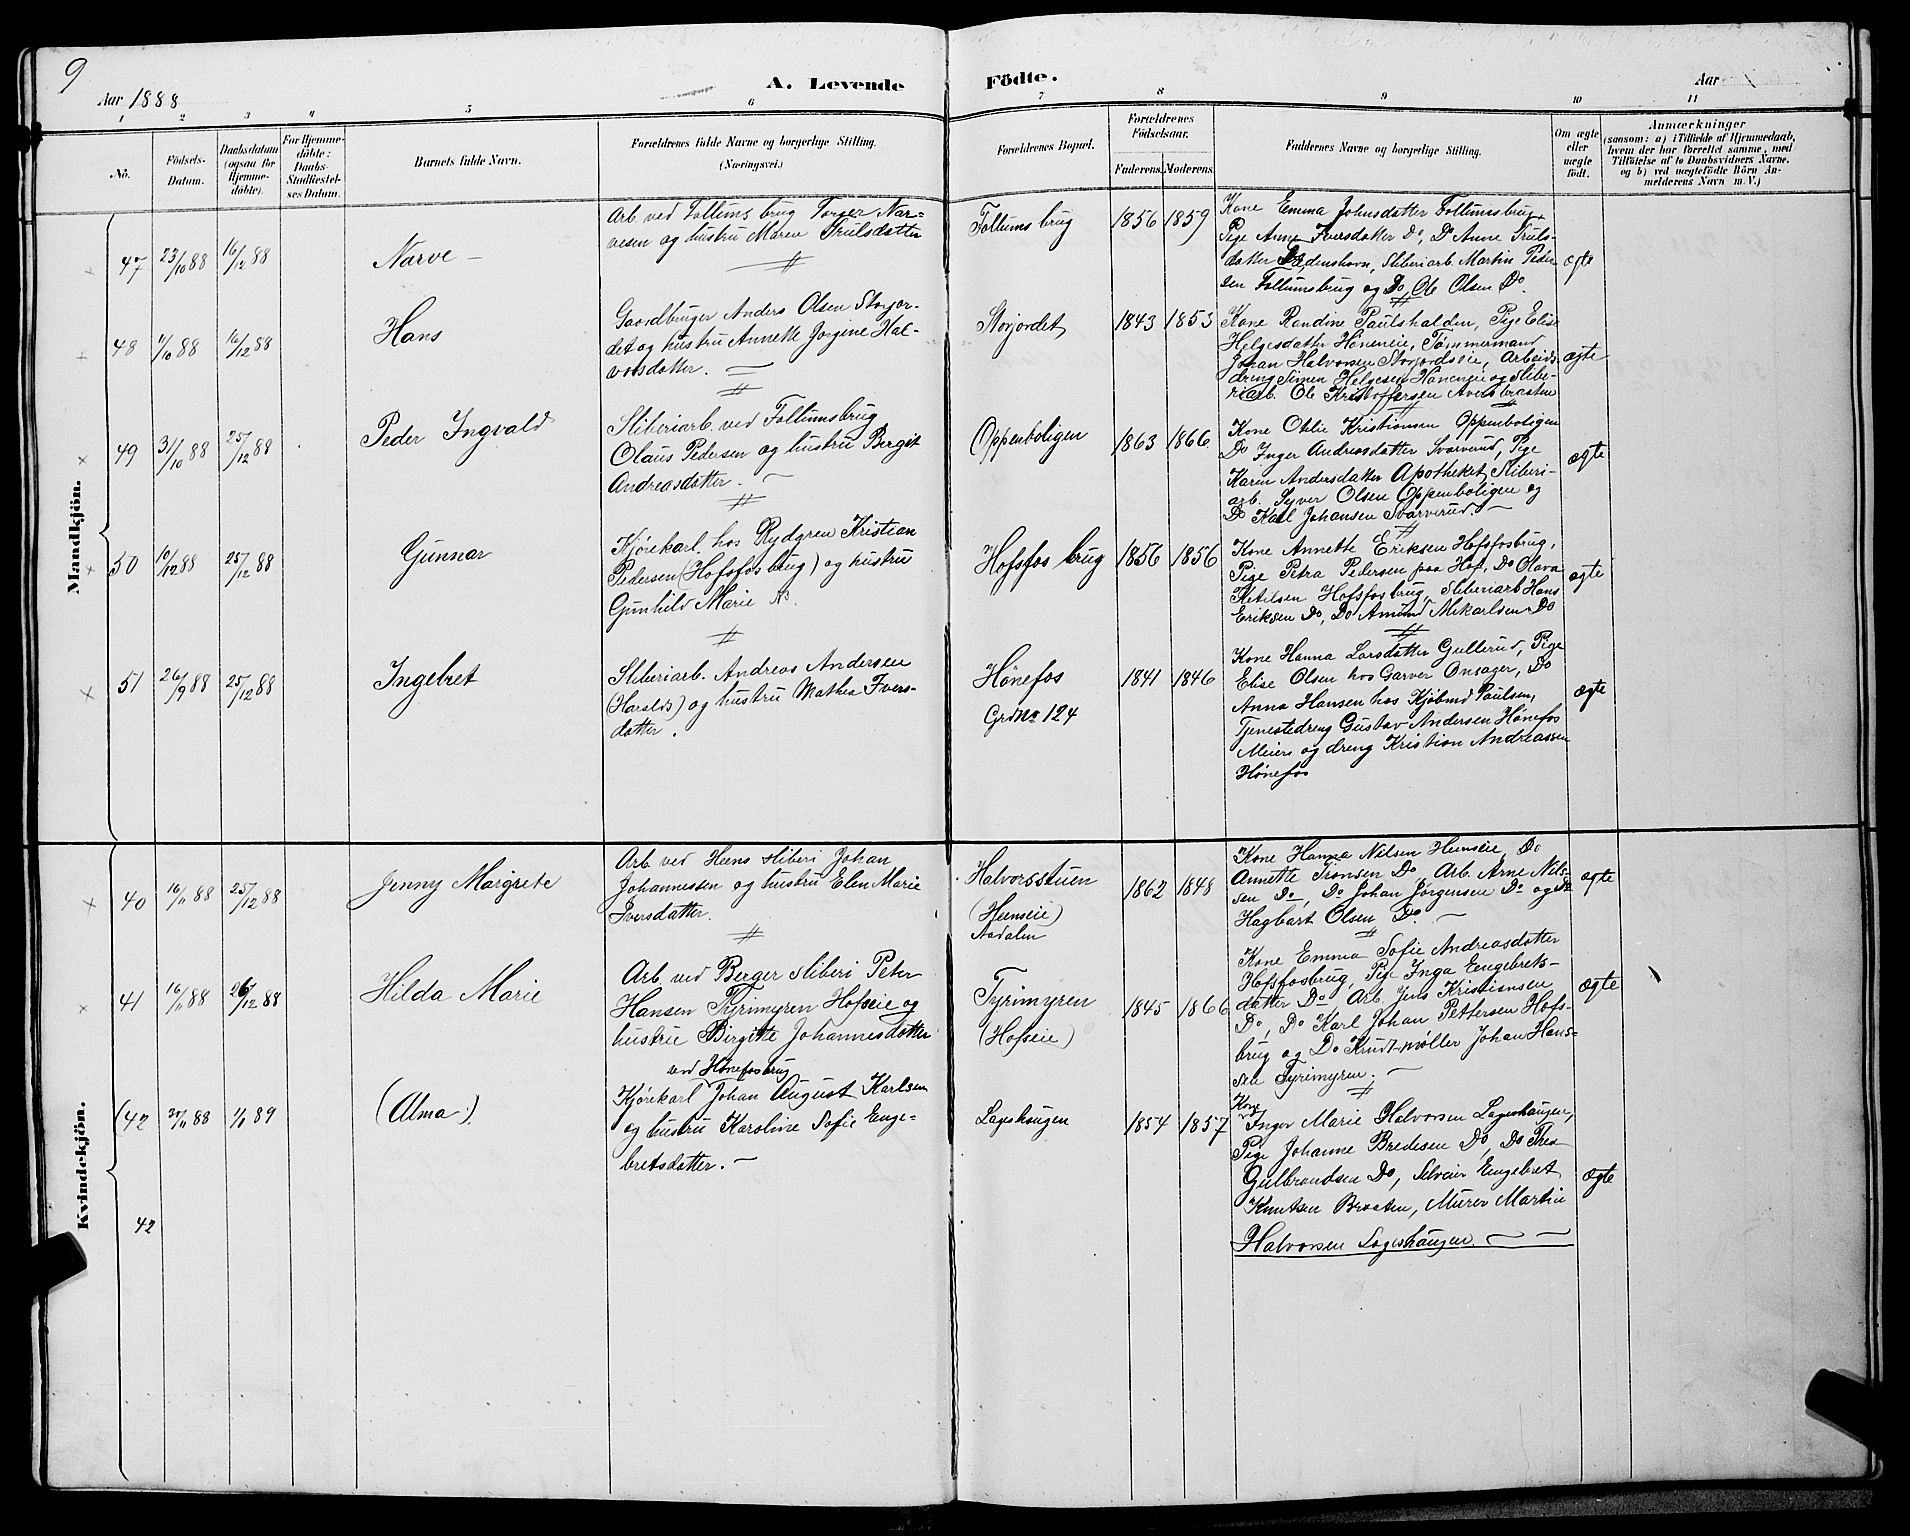 9
Aar 1888
A. Levende Födte.
Aar
1 2 3 4 5 6 7 8 9 10 11
No.
Födsels-
Datum.
Daabsdatum
(ogsaa for
Hjemme-
döbte).
For Hjemme-
döbte:
Daabs-
Stadfæstel-
ses Datum.
Barnets fulde Navn.
Forældrenes fulde Navne og borgerlige Stilling.
(Næringsvei.)
Forældrenes Bopæl.
Forældrenes
Födselsaar.
Faderens. Moderens.
Faddernes Navne og borgerlige Stilling.
Om ægte
eller
uægte
födt.
Anmærkninger
(saasom: a) i Tilfælde af Hjemmedaab,
hvem der har forrettet samme, med
Tilföielse af to Daabsvidners Navne.
og b) ved uægtefödte Börn An-
melderens Navn m. V.)
Mandkjön.
47 23/10 88 16/12 88 Narve –
Arb ved Follums brug Torger Nar-
vesen og hustru Maren Trulsdatter
Follums brug 1856 1859
Kone Emma Johnsdatter Follumsbrug
Pige Anne Iversdatter Do, Do Anne Truls-
datter Ædenshavn, Sliberiarb. Martin Peder-
sen Follumsbrug og Do Ole Olsen Do.
ægte
48 11/10 88 16/12 88 Hans
Gaardbruger Anders Olsen Storjor-
det og hustru Annette Jorgine Hal-
vorsdatter. –
Storjordet 1843 1853
Kone Randine Paulshalden, Pige Elise
Helgesdatter Høneneie, Tømmermand
Johan Halvorsen Storjordseie, Arbeids-
dreng Simen Helgesen Høneneie og Slibe-
riarb. Ole Kristoffersen
ægte
49 31/10 88 25/12 88 Peder Ingvald
Sliberiarb. ved Follumsbrug
Olaus Pedersen og hustru Bergit
Andreasdatter. –
Oppenboligen 1863 1866
Kone Oblie Kristiansen Oppenboligen
Do Inger Andreasdatter Svarverud, Pige
Karin Andersdatter Apotheket, Sliberi-
arb. Syver Olsen Oppenboligen og
Do Karl Johansen Svarverud. –
ægte
50 10/12 88 25/12 88 Gunnar
Kjørekarl hos Rydgren Kristian
Pedersen (Hofsfos brug) og hustru
Gunhild Marie N.
Hofsfos brug 1856 1856
Kone Annette Eriksen Hofsfosbrug,
Pige Petra Pedersen paa Hof, Do Olava
Ketelsen Hofsfosbrug, Sliberiarb Hans
Eriksen Do, Do Amund Mikarlsen Do
ægte
51 26/9 88 25/12 88 Ingebret
Sliberiarb. Andreas Andersen
(Haralds) og hustru Mathea Ivers-
datter.
Hønefos
Grd No 124
1841 1846
Kone Hanna Larsdatter Gullerud, Pige
Elise Olsen hos Garver Onsager, Do
Anna Hansen hos Kjøbmd Paulsen,
Tjenestedreng Gustav Andersen Hønefos
Meieri og dreng Kristian Andreassen
Hønefos
ægte
Kvindekjön.
40 16/11 88 25/12 88 Jenny Margrete
Arb ved Heens sliberi Johan
Johannessen og hustru Elen Marie
Iversdatter.
Halvorsstuen
(Heenseie)
Aadalen
1862 1848
Kone Hanna Nilsen Heenseie, Do
Annette Tronsen Do, Arb. Arne Nils-
sen Do, Do Johan Jørgensen Do og Do
Hagbart Olsen Do –
ægte
41 16/11 88 26/12 88 Hilda Marie
Arb ved Berger sliberi Peter
Hansen Tyrimyren Hofseie og
hustru Birgitte Johannesdatter
Tyrimyren
(Hofseie)
1845 1866
Kone Emma Sofie Andreasdatter
Hofsfosbrug, Pige Inga Eengebrets-
datter Do Arb. Jens Kristiansen
Do, Do Karl Johan Pettersen Hofs-
brug og Do Knudt-møller Johan Hans-
sen Tyrimyren. –
ægte
(42 20/11 88 1/1 89 (Alma).
ved Hønefosbrug
Kjørekarl Johan August Karlsen
og hustru Karoline Sofie Enge-
bretsdatter. –
Lageshaugen 1854 1857
Kone
Inger Marie Halvorsen Lageshaugen,
Pige Johanne Bredesen Do, Do Thea
Gulbrandsen Do, Selveier Eengebret
Knutsen Braaten, Murer Martin
Halvorsen Lageshaugen. –
ægte
42